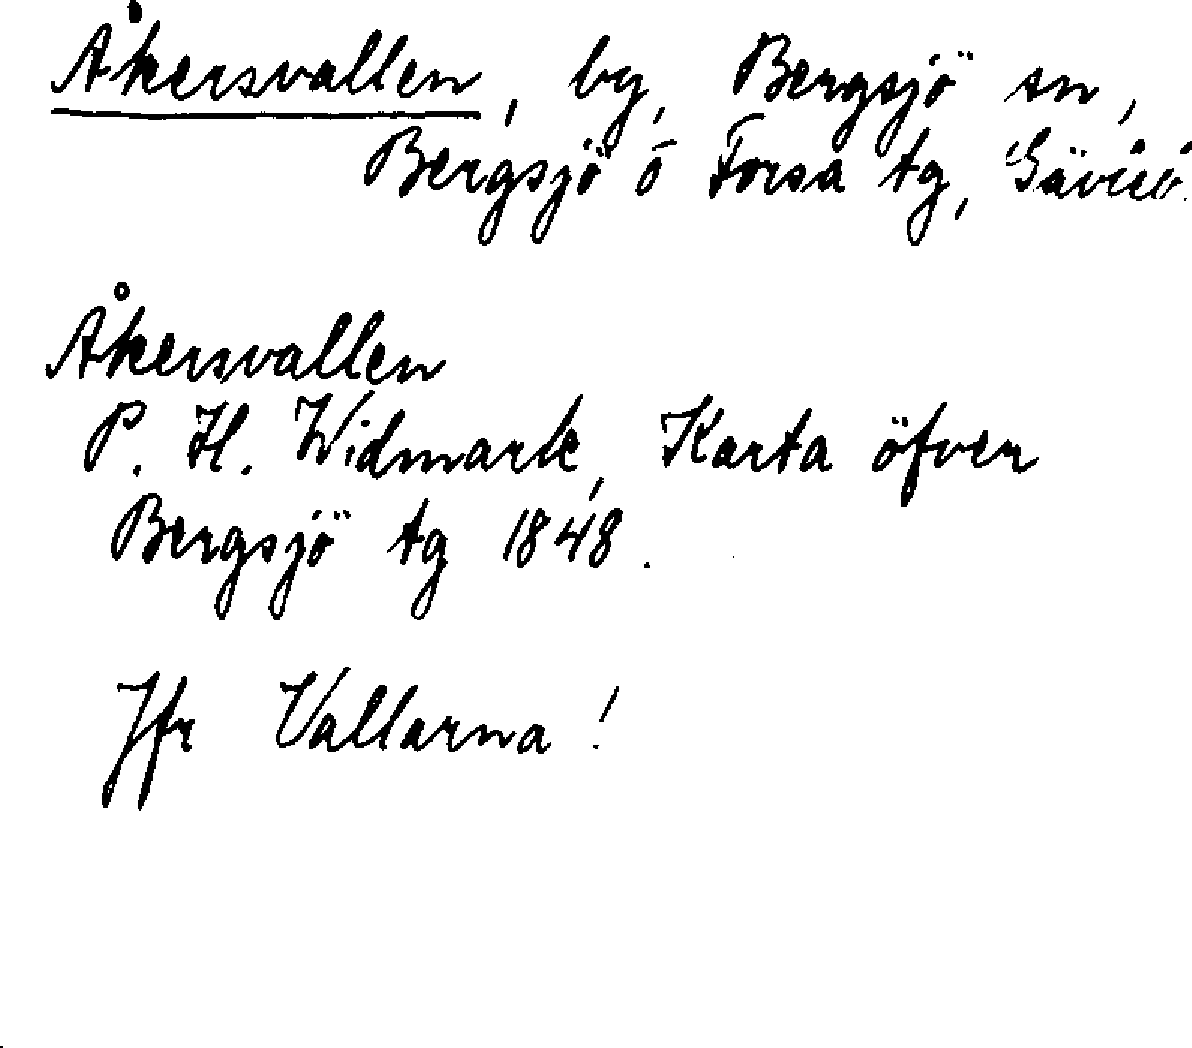 Åkersvallen, by, Bergsjö sn,
Bergsjö o Forsa tg,
Åkersvallen
P. H. Widmark, Karta öfver
Bergsjö tg 1848.
Jfr Vallarna!